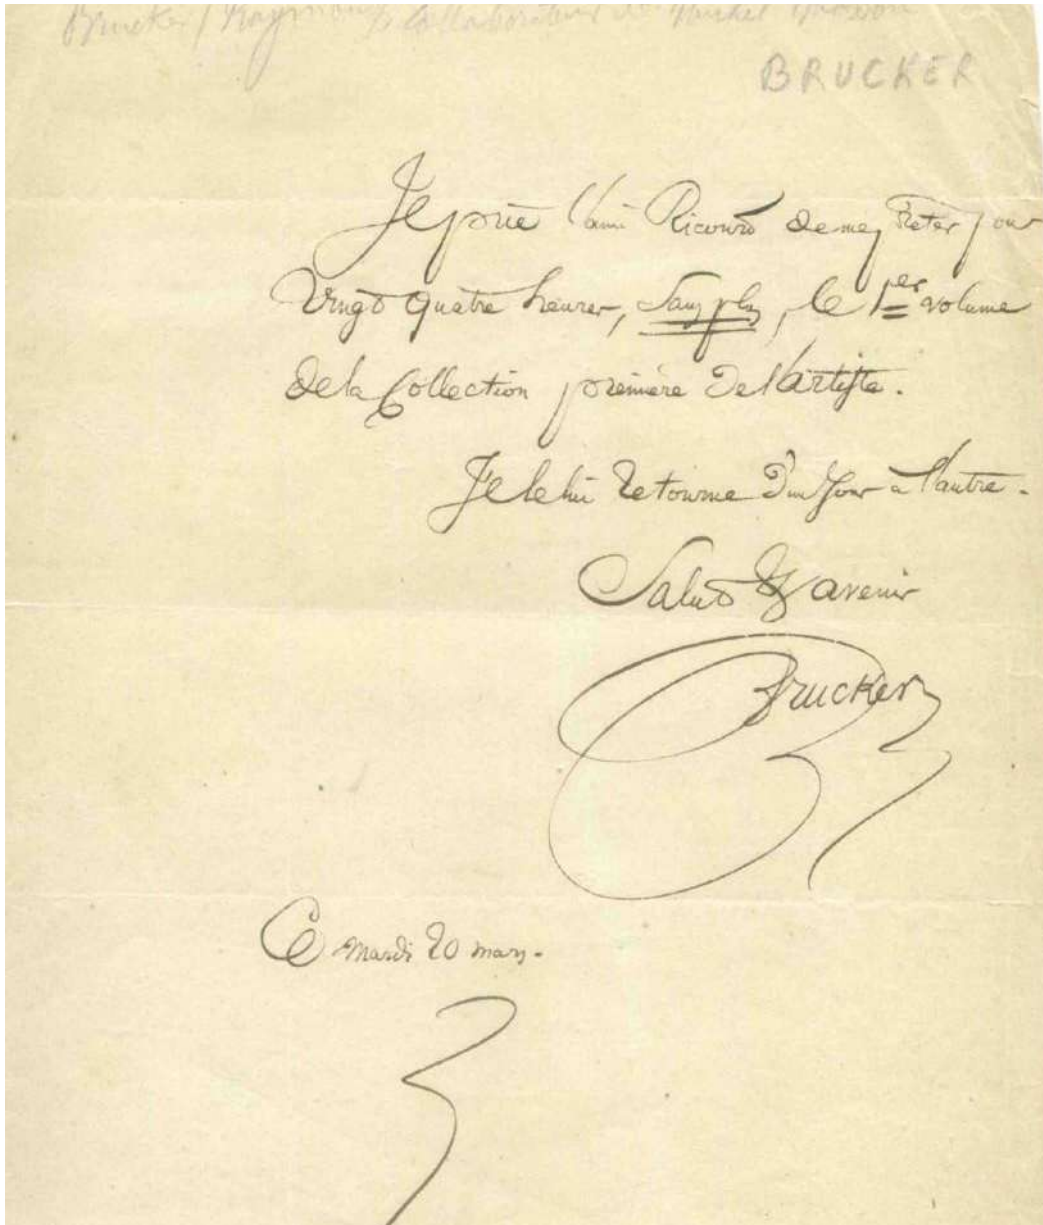 Brucker / Raymond / Collaborateur de Michel Masson
BRUCKER
Je prie l'ami Ricourd de me prêter pour
Vingt quatre heures, Sans plus, le 1er volume
de la Collection première de l'artiste.
Je le lui retourne d'un jour à l'autre.
Salut & avenir
Brucker
Ce mardi 20 mars.